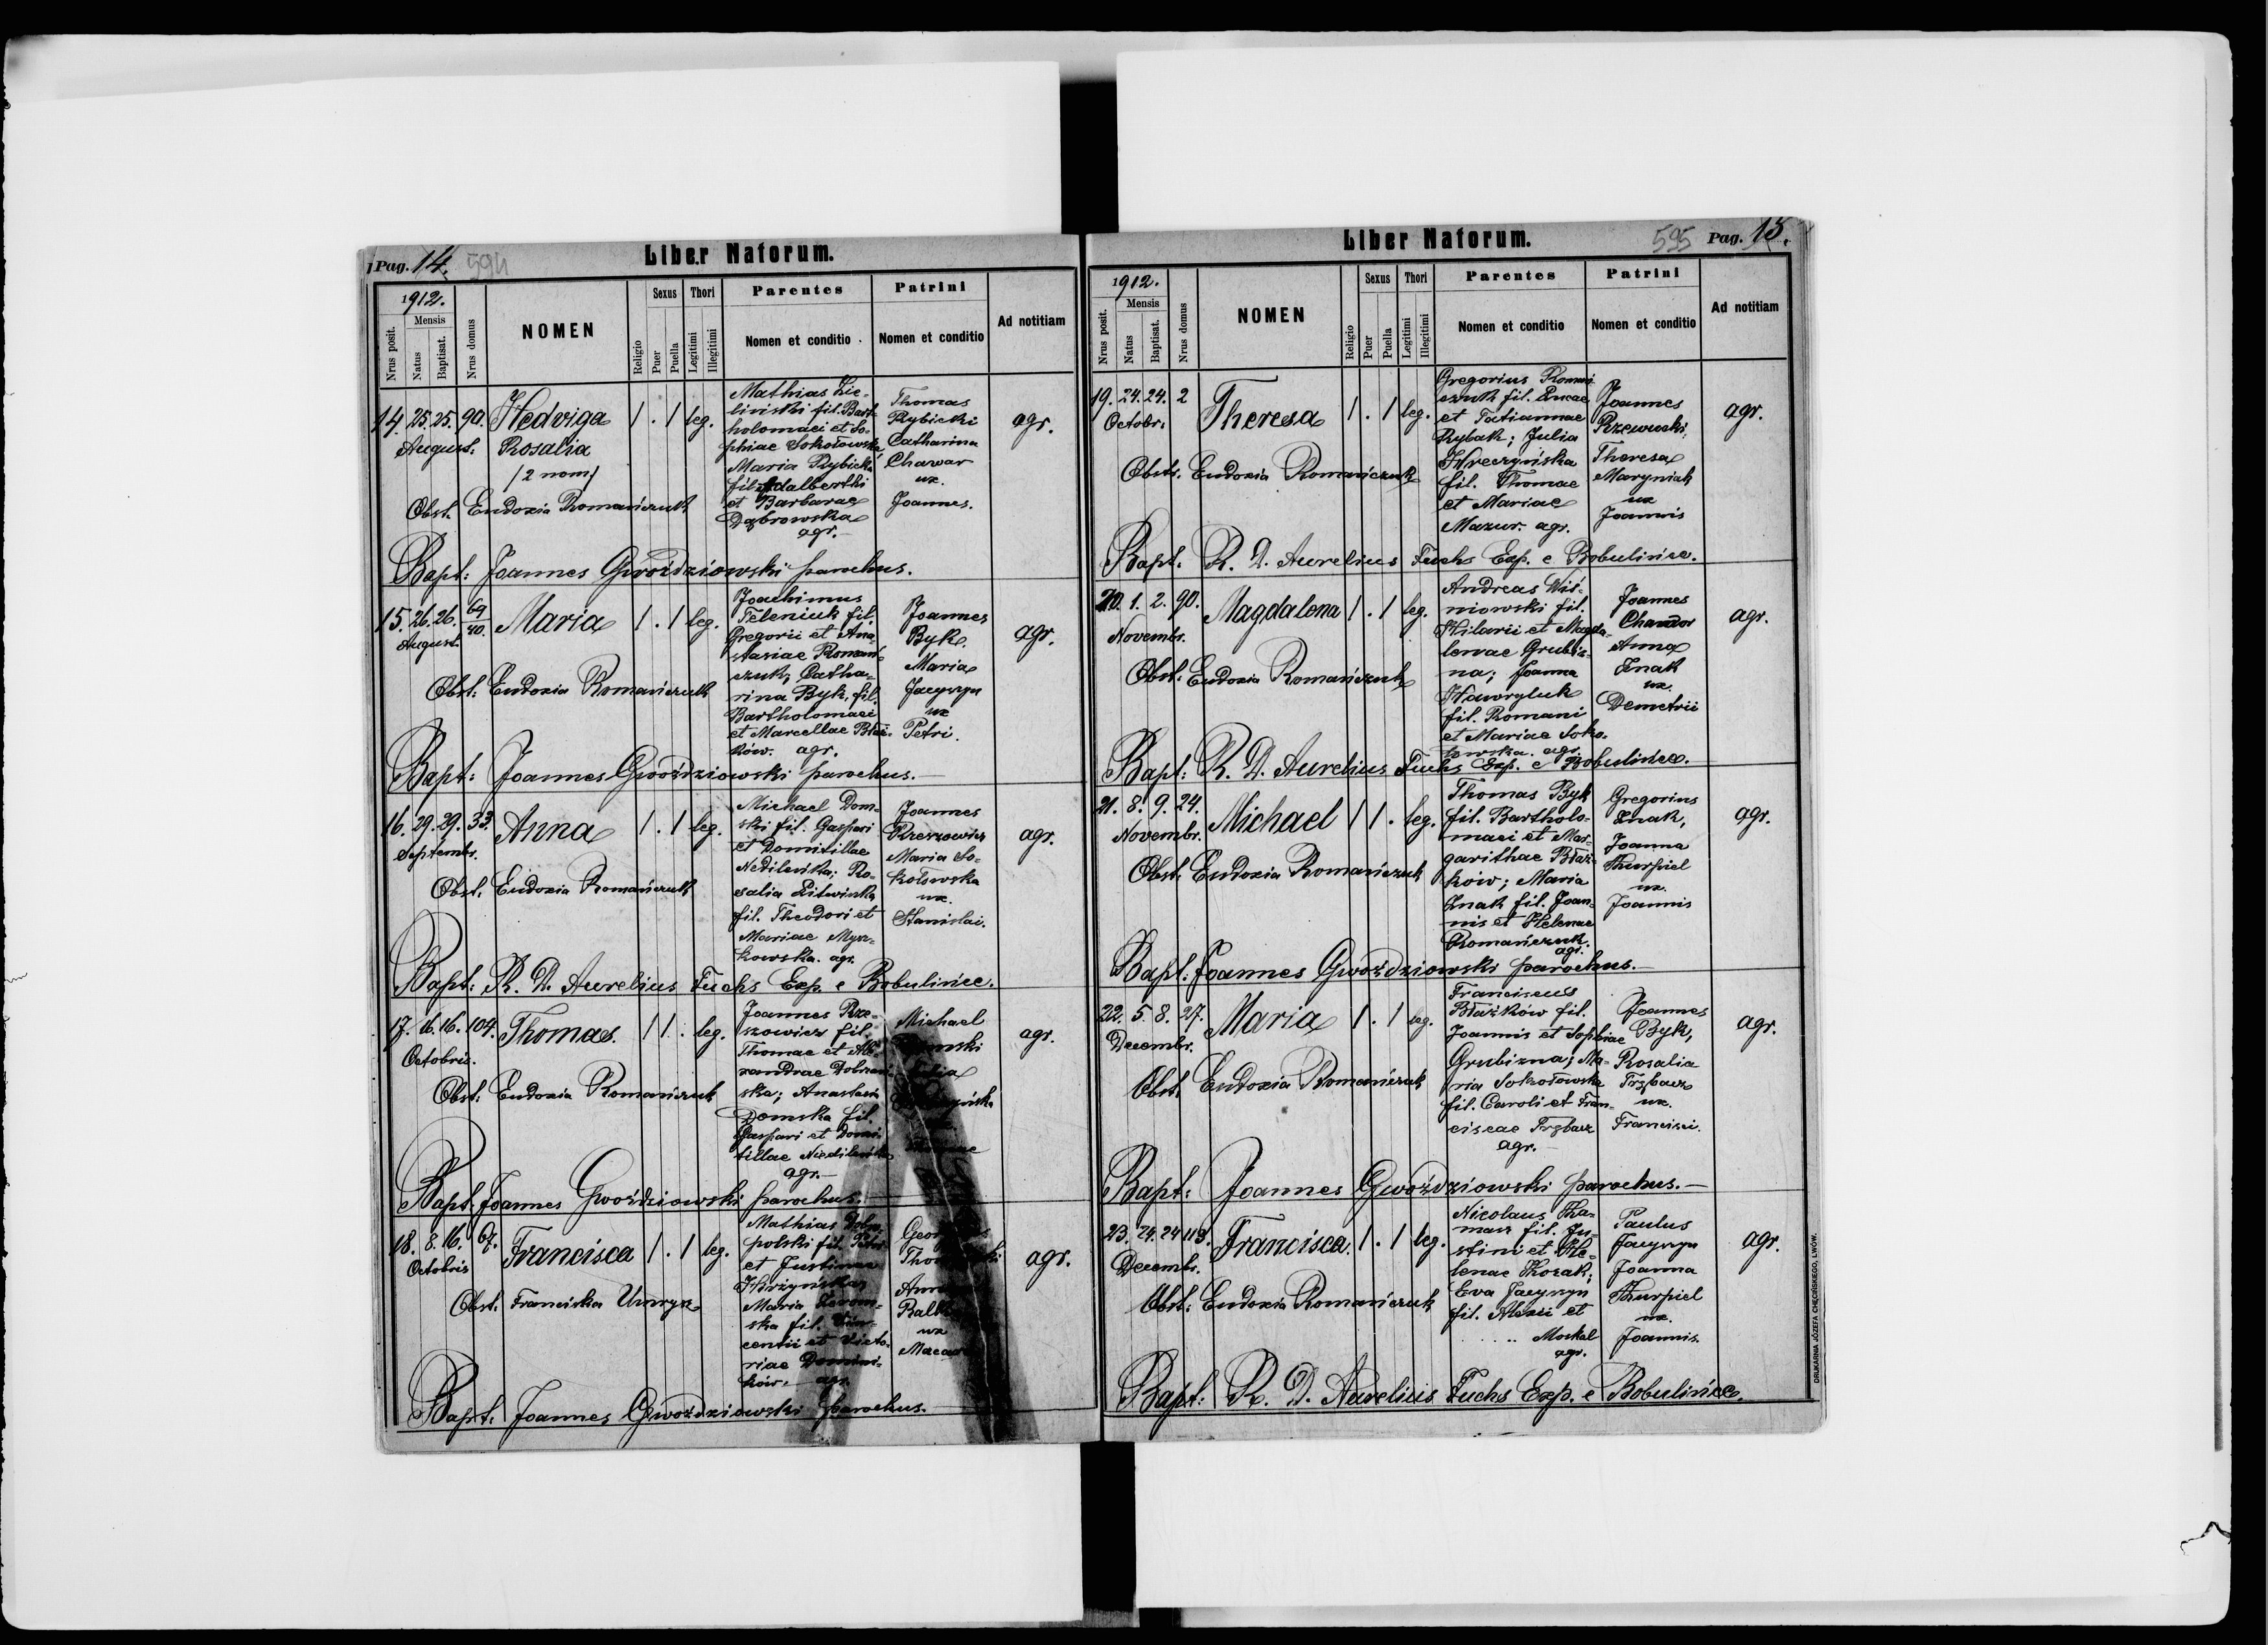 Pag. 14. 594
Liber Natorum.
1912.
Nrus posit.
Mensis
Natus
Baptisat.
Nrus domus
NOMEN
Religio
Sexus
Puer
Puella
Thori
Legitimi
Illegitimi
Parentes
Nomen et conditio
Patrini
Nomen et conditio
Ad notitiam
14. 25. 25. 90. Hedviga 1 . 1 leg.
August. Rosalia
(2 nom)
Obst. Eudoxia Romańczuk
Mathias Zie-
liński fil. Bart-
holomaei et So-
phiae Sokołowska,
Maria Rybicka
fil. Adalberthi
et Barbarae
Dąbrowska
agr.
Thomas
Rybicki
Catharina
Chawar
ux.
Joannes.
agr.
Bapt: Joannes Gwoździowski parochus.
15. 26. 26. 69/40. Maria 1 . 1 leg.
August.
Obst. Eudoxia Romańczuk
Joachimus
Teleniuk fil.
Gregorii et Ana-
stasiae Romań-
czuk; Catha-
rina Byk, fil.
Bartholomaei
et Marcellae Błaż-
ków. agr.
Joannes
Byk,
Maria
Jacyszyn
ux
Petri.
agr.
Bapt: Joannes Gwoździowski parochus.
16. 29. 29. 33. Anna 1 . 1 leg.
Septembr.
Obst. Eudoxia Romańczuk
Michael Dom-
ski fil. Gaspari
et Domitillae
Nedileńka; Ro-
salia Litwinka
fil. Theodori et
Mariae Mysz-
kowska. agr.
Joannes
Rzeszowicz
Maria So-
kołowska
ux.
Stanislai.
agr.
Bapt: R. D. Aurelius Fuchs Exp. e Bobulińce.
17. 16. 16. 104. Thomas. 1 1 . leg.
Octobris.
Obst: Eudoxia Romańczuk
Joannes Rze-
szowicz fil.
Thomae et
ska; Anastasia
Domska fil.
Gaspari et Domi-
tillae
agr.
Michael
agr.
Bapt. Joannes Gwoździowski parochus.
18. 8. 16. 67. Francisca 1 . 1 leg.
Octobris
Obst. Franciska
Mathias
polski fil.
et Justinae
Maria
ska fil. Vin-
centii et Victo-
riae Domini-
ków. agr.
ux
agr.
Bapt. Joannes Gwoździowski parochus.
Liber Natorum.
595 Pag. 15.
1912.
Nrus posit.
Mensis
Natus
Baptisat.
Nrus domus
NOMEN
Religio
Sexus
Puer
Puella
Thori
Legitimi
Illegitimi
Parentes
Nomen et conditio
Patrini
Nomen et conditio
Ad notitiam
19. 24. 24. 2 Theresa 1 . 1 leg.
Octobr.
Obstr. Eudoxia Romańczuk
Gregorius Romań-
czuk fil. Lucae
et Tatiannae
Rybak; Julia
Hreczyńska
fil. Thomae
et Mariae
Mazur. agr.
Joannes
Rzewuski,
Theresa
Maryniak
ux
Joannis
agr.
Bapt. R. D. Aurelius Fuchs Exp. e Bobulińce.
20. 1. 2. 90. Magdalena 1 . 1 leg.
Novembr.
Obst: Eudoxia Romańczuk
Andreas Wiś-
niowski fil.
Hilarii et Magda-
lenae Grubiz-
na; Joanna
Hawryluk
fil. Romani
et Mariae Soko-
łowska. agr.
Joannes
Anna
Znak
ux.
Demetrii
agr.
Bapt: R. D. Aurelius Fuchs Exp. e Bobulińce.
21. 8. 9. 24. Michael 1 1 . leg.
Novembr.
Obst: Eudoxia Romańczuk
Thomas Byk
fil. Bartholo-
maei et Mar-
garithae Błaż-
ków; Maria
Znak fil. Joan-
nis et Helenae
Romańczuk.
agr.
Gregorius
Znak,
Joanna
Thurpiel
ux.
Joannis
agr.
Bapt: Joannes Gwoździowski parochus.
22. 5. 8. 27. Maria 1 . 1 leg.
Decembr.
Obst. Eudoxia Romańczuk
Franciscus
Błażków fil.
Joannis et Sophiae
Grubizna; Ma-
ria Sokołowska
fil. Caroli et Fran-
ciscae Trębacz
agr.
Joannes
Byk,
Rosalia
Trębacz
ux.
Francisci.
agr.
Bapt: Joannes Gwoździowski parochus.
23. 24. 24 113. Francisca. 1 . 1 leg.
Decembr.
Obst: Eudoxia Romańczuk
Nicolaus Tha-
masz fil. Ju-
stini et He-
lenae Kozak;
Eva Jacyszyn
fil. Alexii et
Moskal
agr.
Paulus
Jacyszyn
Joanna
Thurpiel
ux.
Joannis.
agr.
Bapt: R. D. Aurelius Fuchs Exp. e Bobulińce.
DRUKARNIA JÓZEFA CHĘCIŃSKIEGO, LWÓW.